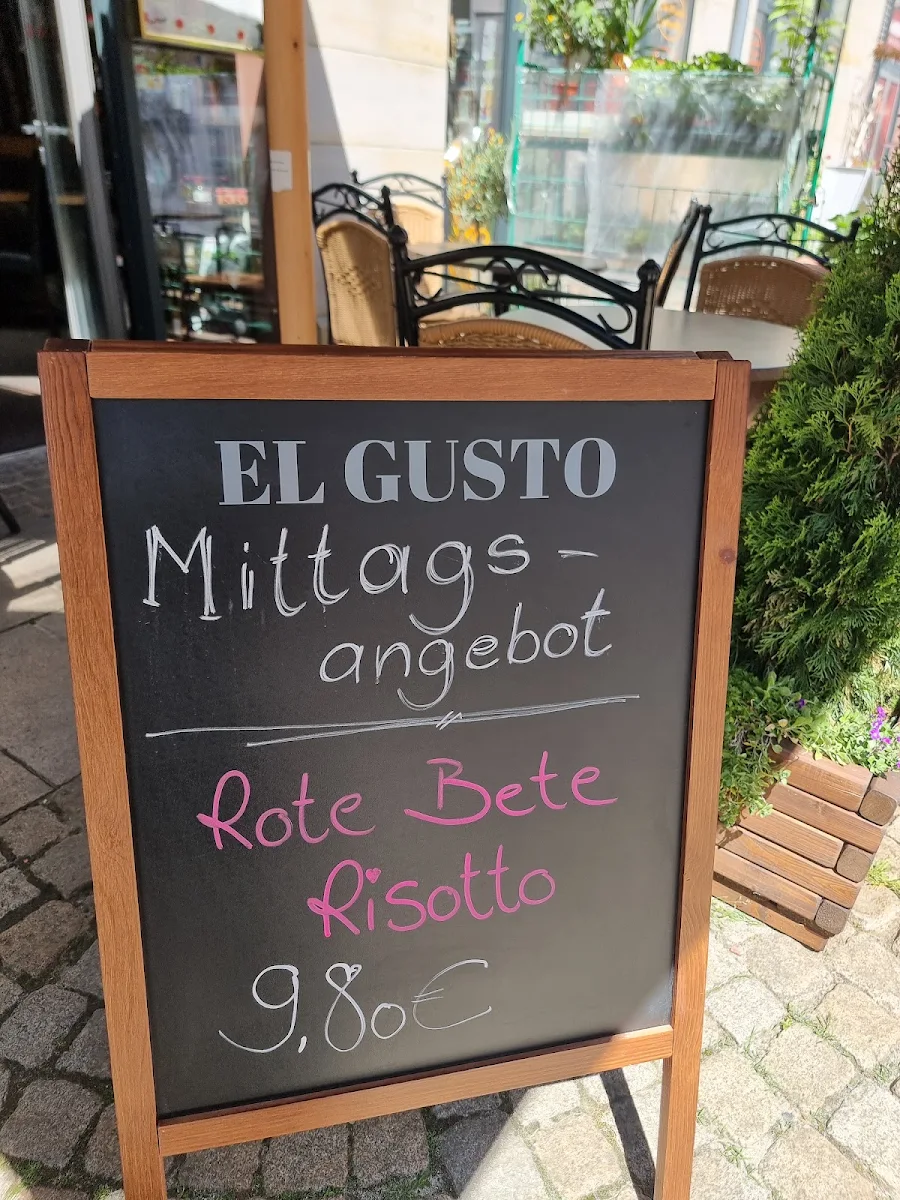 EL GUSTO
Mittags-
angebot
Rote Bete
Risotto
9,80€